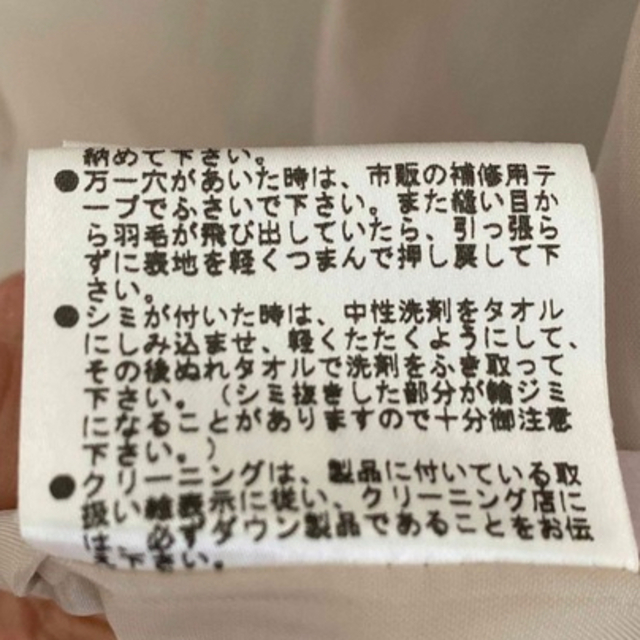 納めて下さい。
●万一穴があいた時は、市販の補修用テ
ープでふさいで下さい。また縫い目か
ら羽毛が飛び出していたら、引っ張ら
ずに表地を軽くつまんで押し戻して下
さい。
●シミが付いた時は、中性洗剤をタオル
にしみ込ませ、軽くたたくようにして、
その後ぬれタオルで洗剤をふき取って
下さい。(シミ抜きした部分が輪ジミ
になることがありますので十分御注意
下さい。)
●クリーニングは、製品に付いている取
扱い絵表示に従い、クリーニング店に
は、必ずダウン製品であることをお伝
え下さい。